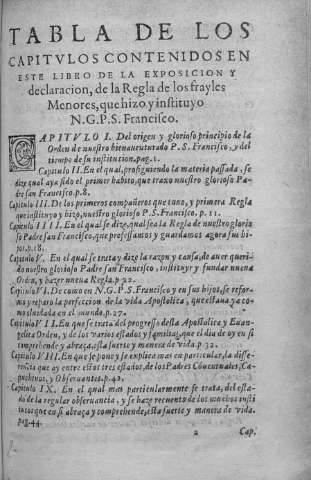 TABLA DE LOS
CAPITVLOS CONTENIDOS EN
ESTE LIBRO DE LA EXPOSICION Y
declaracion, de la Regla de los frayles
Menores, que hizo y instituyo
N.G.P.S. Francisco.
CAPITVLO I. Del origen y glorioso principio de la
Orden de nuestro bienauenturado P.S. Francisco, y del
tiempo de su institucion, pag.1.
Capitulo II. En el qual, prosiguiendo la materia passada, se
dize qual aya sido el primer habito, que traxo nuestro glorioso Pa-
dre san Francisco, p.8.
Capitulo III. De los primeros compañeros que tuuo, y primera Regla
que instituyo y hizo, nuestro glorioso P.S. Francisco, p. 11.
Capitulo IIII. En el qual se dize, qual sea la Regla de nuestro glorio
so Padre san Francisco, que professamos y guardamos agora sus hi-
jos, p.18.
Capitulo V. En el qual se trata y dize la razon y causa, de auer queri-
do nuestro glorioso Padre san Francisco, instituyr y fundar nueua
Orden, y hazer nueua Regla, p.22.
Capitulo VI. De como en N.G.P.S. Francisco y en sus hijos, se refor-
mo y reparo la perfeccion de la vida Apostolica, que estaua ya co-
mo oluidada en el mundo, p.27.
Capitulo VII. En que se trata del progresso desta Apostolica y Euan-
gelica Orden, y de los varios estados y familias, que el dia de oy en si
comprehende y abraça, esta fuerte y manera de vida. p. 32.
Capitulo VIII. En que se pone y se explica mas en particular, la diffe-
rencia que ay entre estos tres estados, de los Padres Cõuentuales, Ca-
puchinos, y Obseruantes. p.42.
Capitulo IX. En el qual mas particularmente se trata, del esta-
do de la regular obseruancia, y se haze recuento de los muchos insti
tutos que en si abraça y comprehende, esta fuerte y manera de vida.
pag.44.
a Cap.